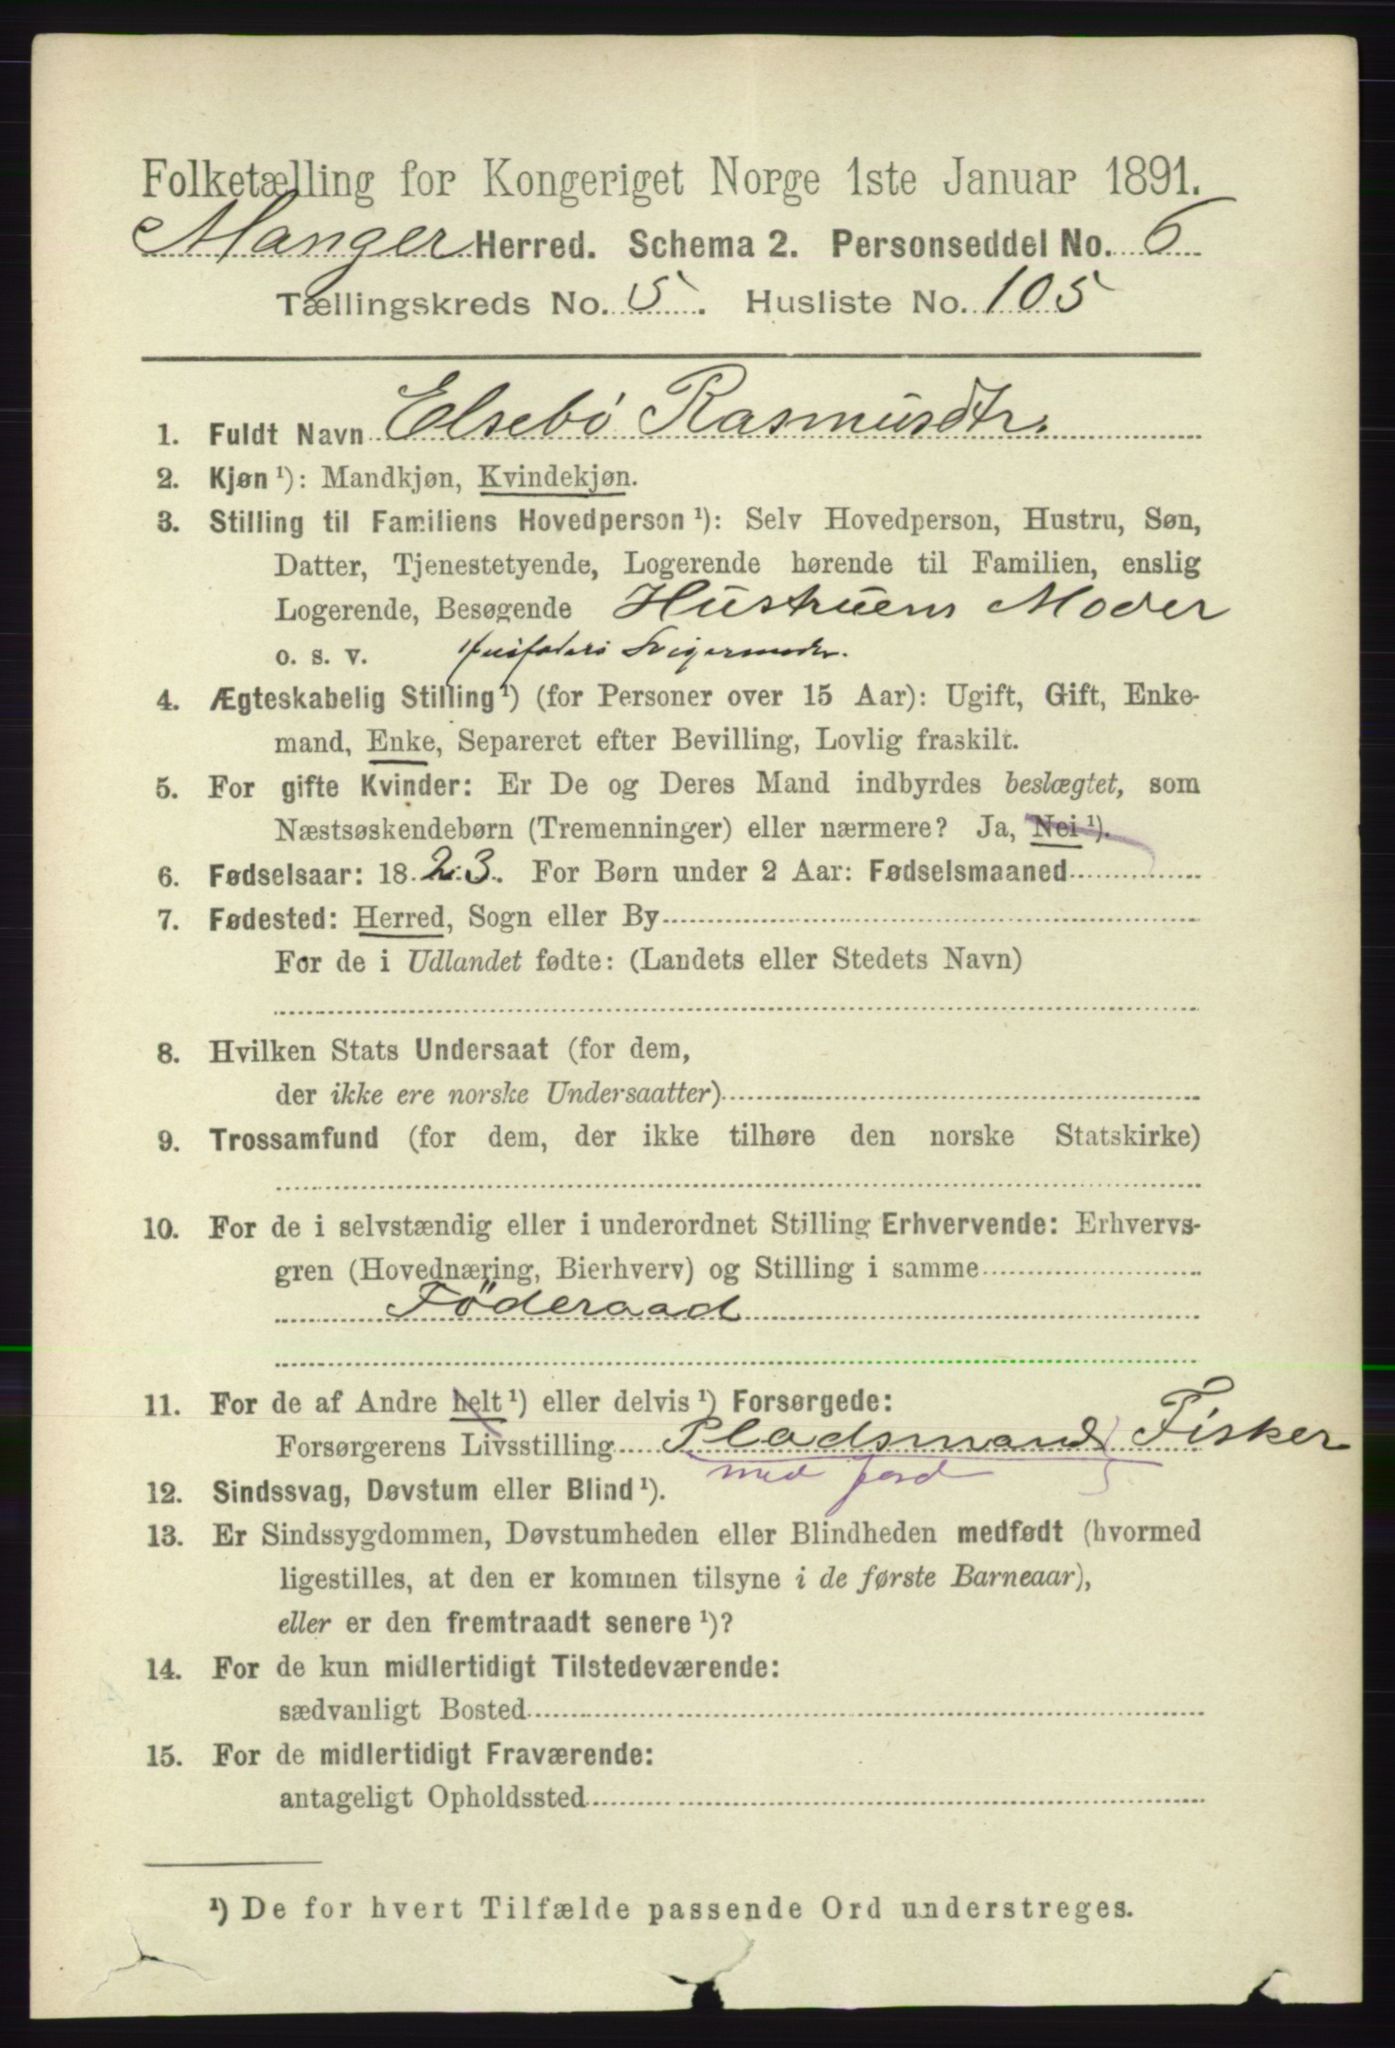 Folketælling for Kongeriget Norge 1ste Januar 1891.
Manger Herred. Schema 2. Personseddel No. 6
Tællingskreds No. 5. Husliste No. 105
1. Fuldt Navn Elsebö Rasmusdtr.
2. Kjøn ¹): Mandkjøn, Kvindekjøn.
3. Stilling til Familiens Hovedperson ¹): Selv Hovedperson, Hustru, Søn,
Datter, Tjenestetyende, Logerende hørende til Familien, enslig
Logerende, Besøgende Hustruens Moder
o. s. v. Husfaders Svigermoder.
4. Ægteskabelig Stilling ¹) (for Personer over 15 Aar): Ugift, Gift, Enke-
mand, Enke, Separeret efter Bevilling, Lovlig fraskilt.
5. For gifte Kvinder: Er De og Deres Mand indbyrdes beslægtet, som
Næstsøskendebørn (Tremenninger) eller nærmere? Ja, Nei ¹).
6. Fødselsaar: 1823. For Børn under 2 Aar: Fødselsmaaned
7. Fødested: Herred, Sogn eller By
For de i Udlandet fødte: (Landets eller Stedets Navn)
8. Hvilken Stats Undersaat (for dem,
der ikke ere norske Undersaatter)
9. Trossamfund (for dem, der ikke tilhøre den norske Statskirke)
10. For de i selvstændig eller i underordnet Stilling Erhvervende: Erhvervs-
gren (Hovednæring, Bierhverv) og Stilling i samme
Föderaad
11. For de af Andre helt ¹) eller delvis ¹) Forsørgede:
Forsørgerens Livsstilling Pladsmand Fisker
med jord
12. Sindssvag, Døvstum eller Blind ¹).
13. Er Sindssygdommen, Døvstumheden eller Blindheden medfødt (hvormed
ligestilles, at den er kommen tilsyne i de første Barneaar),
eller er den fremtraadt senere ¹)?
14. For de kun midlertidigt Tilstedeværende:
sædvanligt Bosted
15. For de midlertidigt Fraværende:
antageligt Opholdssted
¹) De for hvert Tilfælde passende Ord understreges.